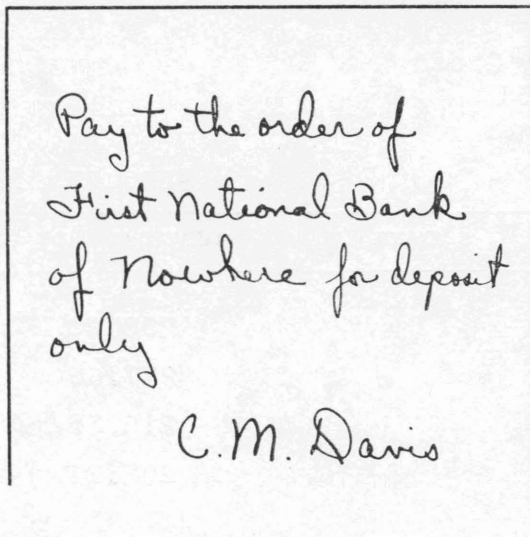 Pay to the order of
First National Bank
of Nowhere for deposit
only
C. M. Davis